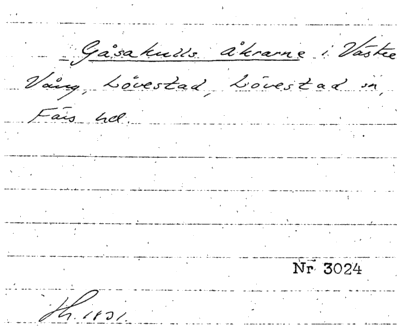 Gåsakulls åkrarne i Västre
Vång, Lövestad, Lövestad sn,
Färs hd.
Nr 3024
1831.